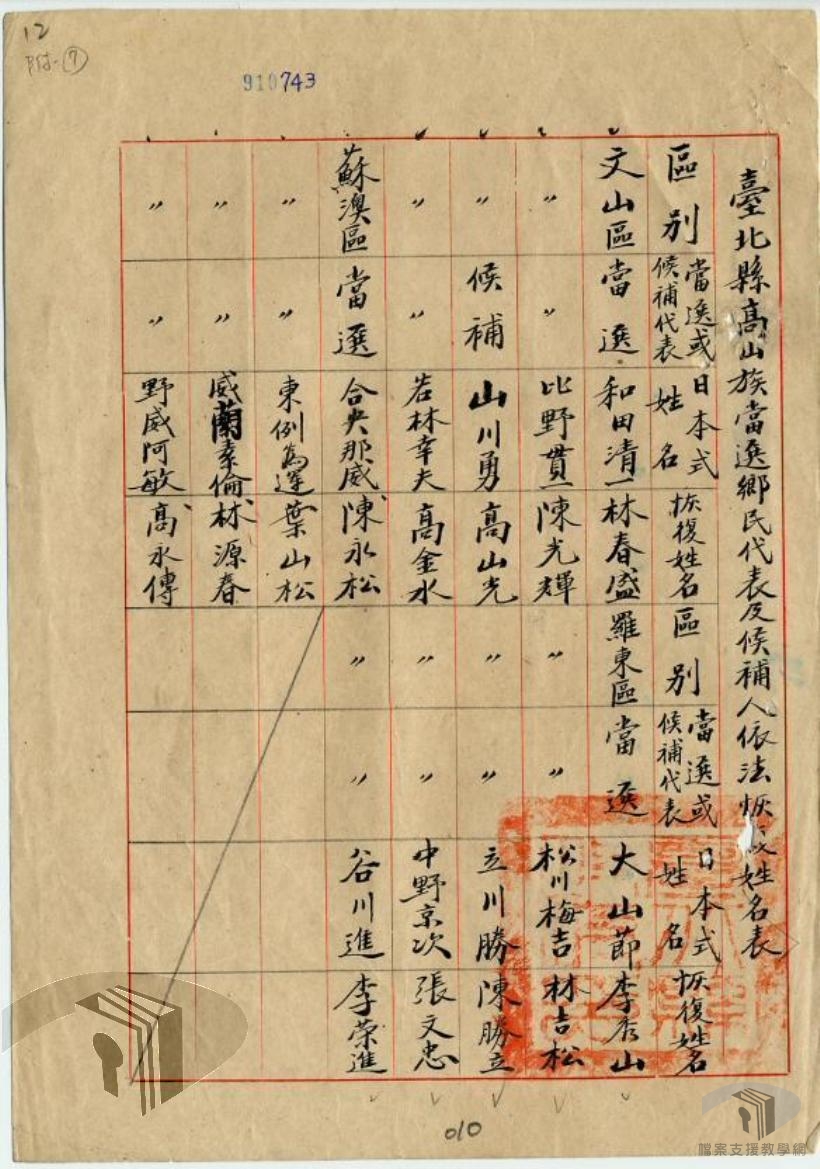 12
附-⑦
910743
臺北縣高山族當選鄉民代表及候補人依法恢復姓名表
區別 當選或候補代表 日本式姓名 恢復姓名 區別 當選或候補代表 日本式姓名 恢復姓名
文山區 當選 和田清一 林春盛 羅東區 當選 大山節 李秀山
〃 〃 比野貫一 陳光輝 〃 〃 松川梅吉 林吉松
〃 候補 山川勇 高山光 〃 〃 立川勝 陳勝立
〃 〃 若林幸夫 高金水 〃 〃 中野京次 張文忠
蘇澳區 當選 合央那威 陳永松 〃 〃 谷川進 李荣進
〃 〃 東例為運 葉山松
〃 〃 威蘭素倫 林源春
〃 〃 野威阿敏 高永傳
010
檔案支援教學網